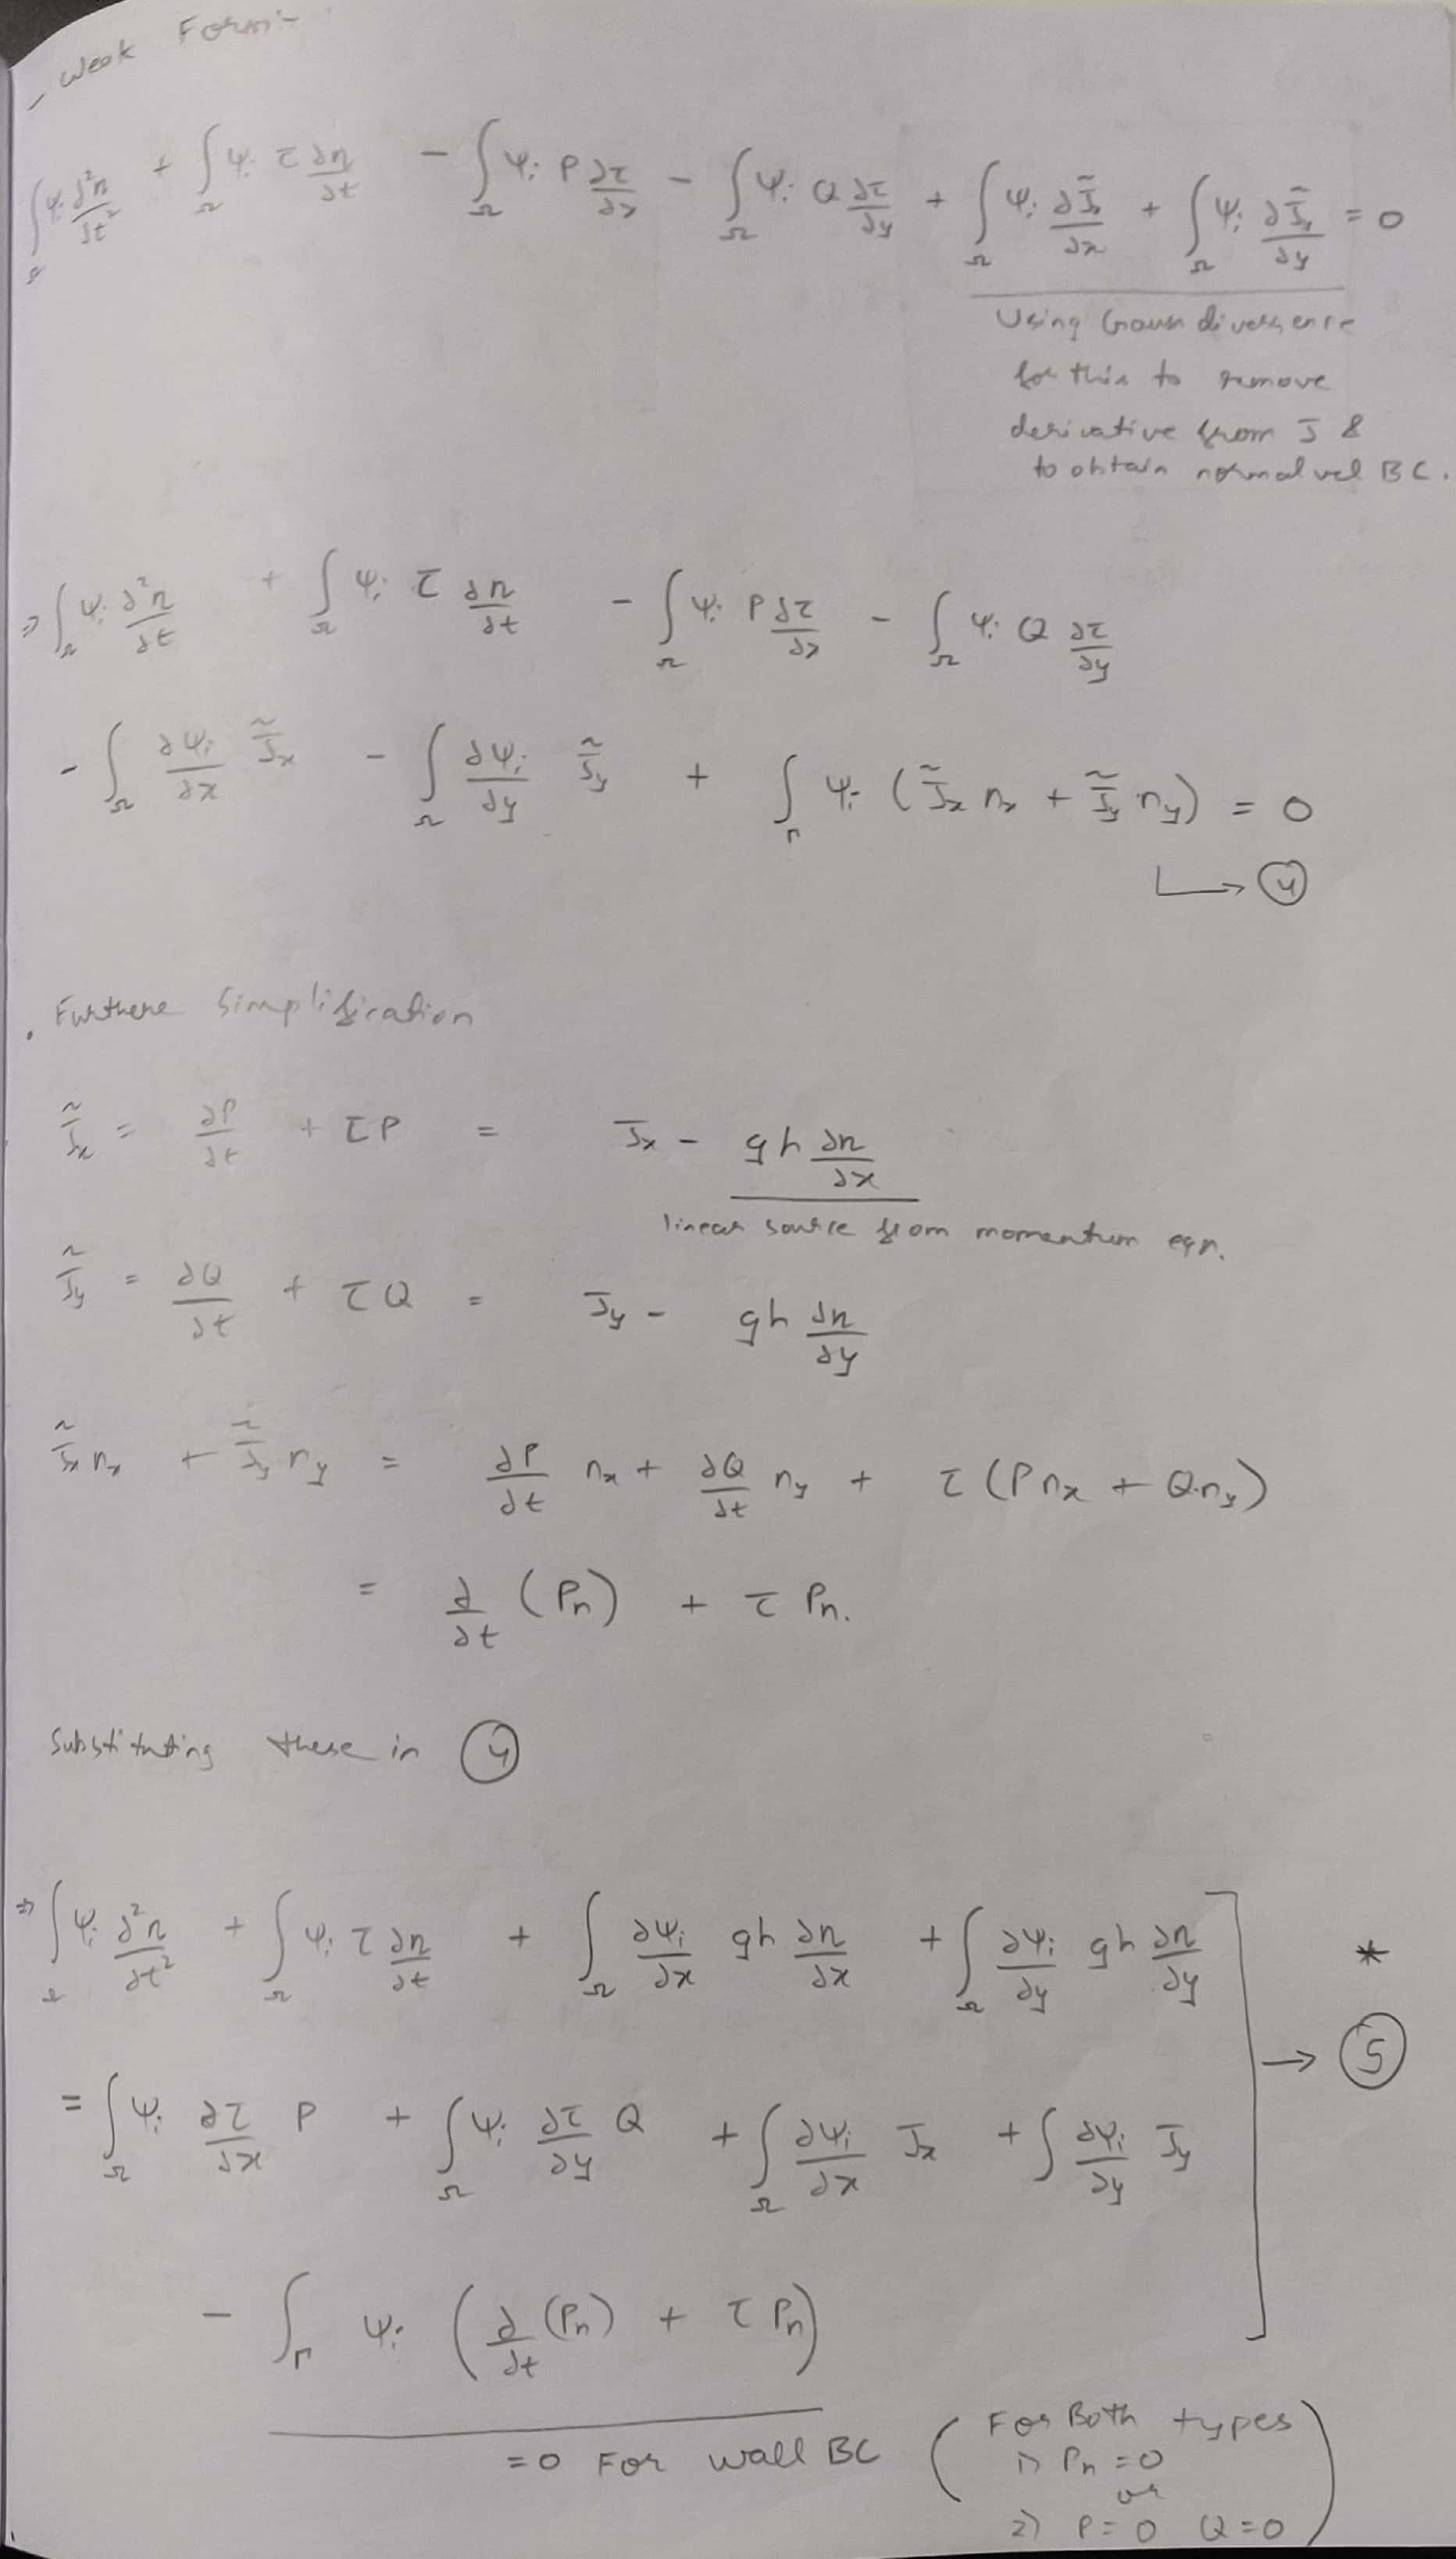 - Weak Form:-
∫_Ω Ψi ∂²η/∂t² + ∫_Ω Ψi τ ∂η/∂t - ∫_Ω Ψi P ∂τ/∂x - ∫_Ω Ψi Q ∂τ/∂y + ∫_Ω Ψi ∂J̃x/∂x + ∫_Ω Ψi ∂J̃y/∂y = 0
Using Gauss divergence
for this to remove
derivative from J &
to obtain normal vel BC.
⇒ ∫_Ω Ψi ∂²η/∂t + ∫_Ω Ψi τ ∂η/∂t - ∫_Ω Ψi P ∂τ/∂x - ∫_Ω Ψi Q ∂τ/∂y
- ∫_Ω ∂Ψi/∂x J̃x - ∫_Ω ∂Ψi/∂y J̃y + ∫_Γ Ψi (J̃x nx + J̃y ny) = 0
↳ ④
. Furthere Simplification
J̃x = ∂P/∂t + τP = Jx - gh ∂η/∂x
linear source from momentum eqn.
J̃y = ∂Q/∂t + τQ = Jy - gh ∂η/∂y
J̃x nx + J̃y ny = ∂P/∂t nx + ∂Q/∂t ny + τ (P nx + Q.ny)
= ∂/∂t (Pn) + τ Pn.
Substituting these in ④
⇒ ∫ Ψi ∂²η/∂t² + ∫_Ω Ψi τ ∂η/∂t + ∫_Ω ∂Ψi/∂x gh ∂η/∂x + ∫_Ω ∂Ψi/∂y gh ∂η/∂y
*
= ∫_Ω Ψi ∂τ/∂x P + ∫_Ω Ψi ∂τ/∂y Q + ∫_Ω ∂Ψi/∂x Jx + ∫ ∂Ψi/∂y Jy → ⑤
- ∫_Γ Ψi (∂/∂t (Pn) + τ Pn)
= 0 For wall BC
(For Both types
1) Pn = 0
or
2) P = 0 Q = 0)